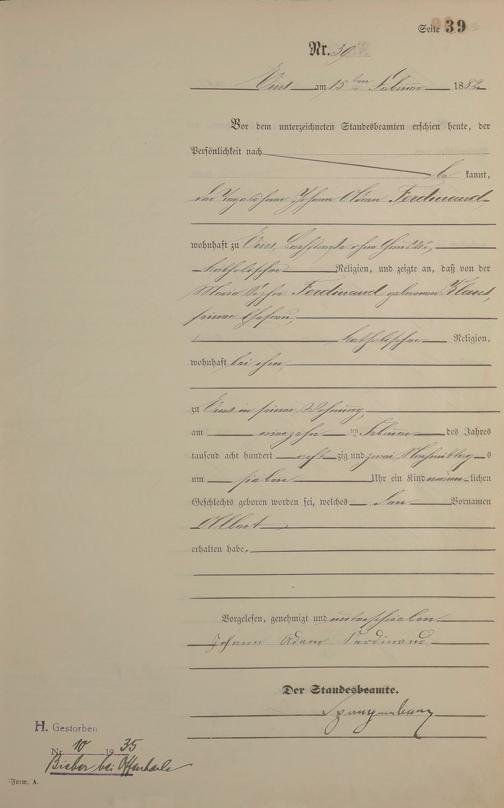 Seite 39
Nr. 39
am 15ten Februar 1882
Vor dem unterzeichneten Standesbeamten erschien heute, der
Persönlichkeit nach
be kannt,
der Johann Adam Ferdinand
wohnhaft zu
katholischer Religion, und zeigte an, daß von der
Maria Ferdinand geborenen
seiner Ehefrau,
katholischer Religion,
wohnhaft bei ihm,
zu in seiner Wohnung,
am ten Februar des Jahres
tausend acht hundert acht zig und zwei Nachmittag s
um sieben Uhr ein Kind männ lichen
Geschlechts geboren worden sei, welches den Vornamen
Albert
erhalten habe.
Vorgelesen, genehmigt und unterschrieben
Johann Adam Ferdinand
Der Standesbeamte.
H. Gestorben
Nr. 10 19 35
Bieber bei Offenbach
Form. A.